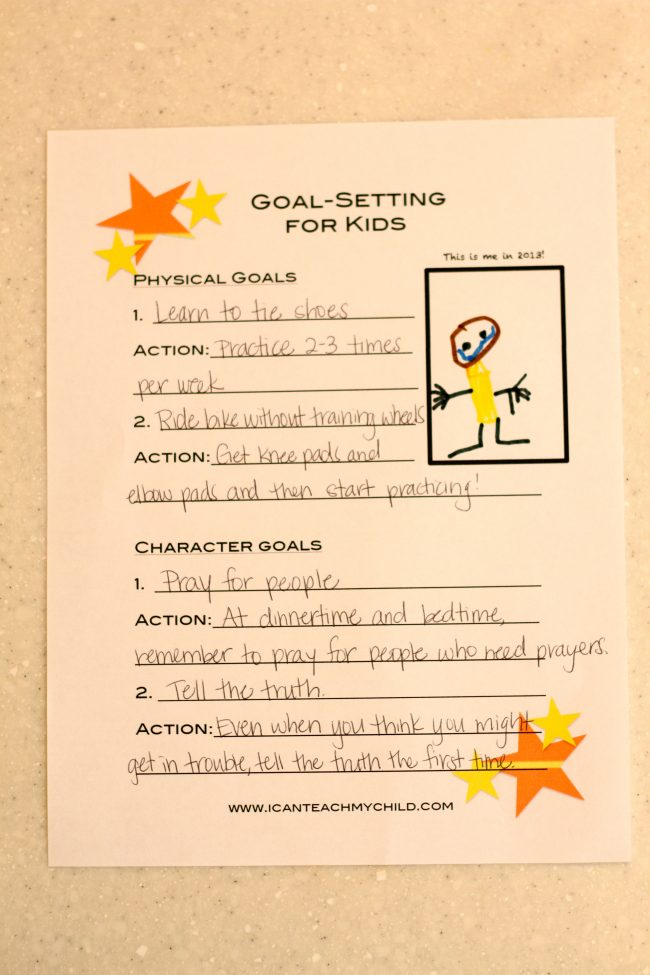 GOAL-SETTING
FOR KIDS
This is me in 2013!
PHYSICAL GOALS
1. Learn to tie shoes
ACTION: Practice 2-3 times
per week
2. Ride bike without training wheels
ACTION: Get knee pads and
elbow pads and then start practicing!
CHARACTER GOALS
1. Pray for people
ACTION: At dinnertime and bedtime,
remember to pray for people who need prayers.
2. Tell the truth.
ACTION: Even when you think you might
get in trouble, tell the truth the first time.
WWW.ICANTEACHMYCHILD.COM